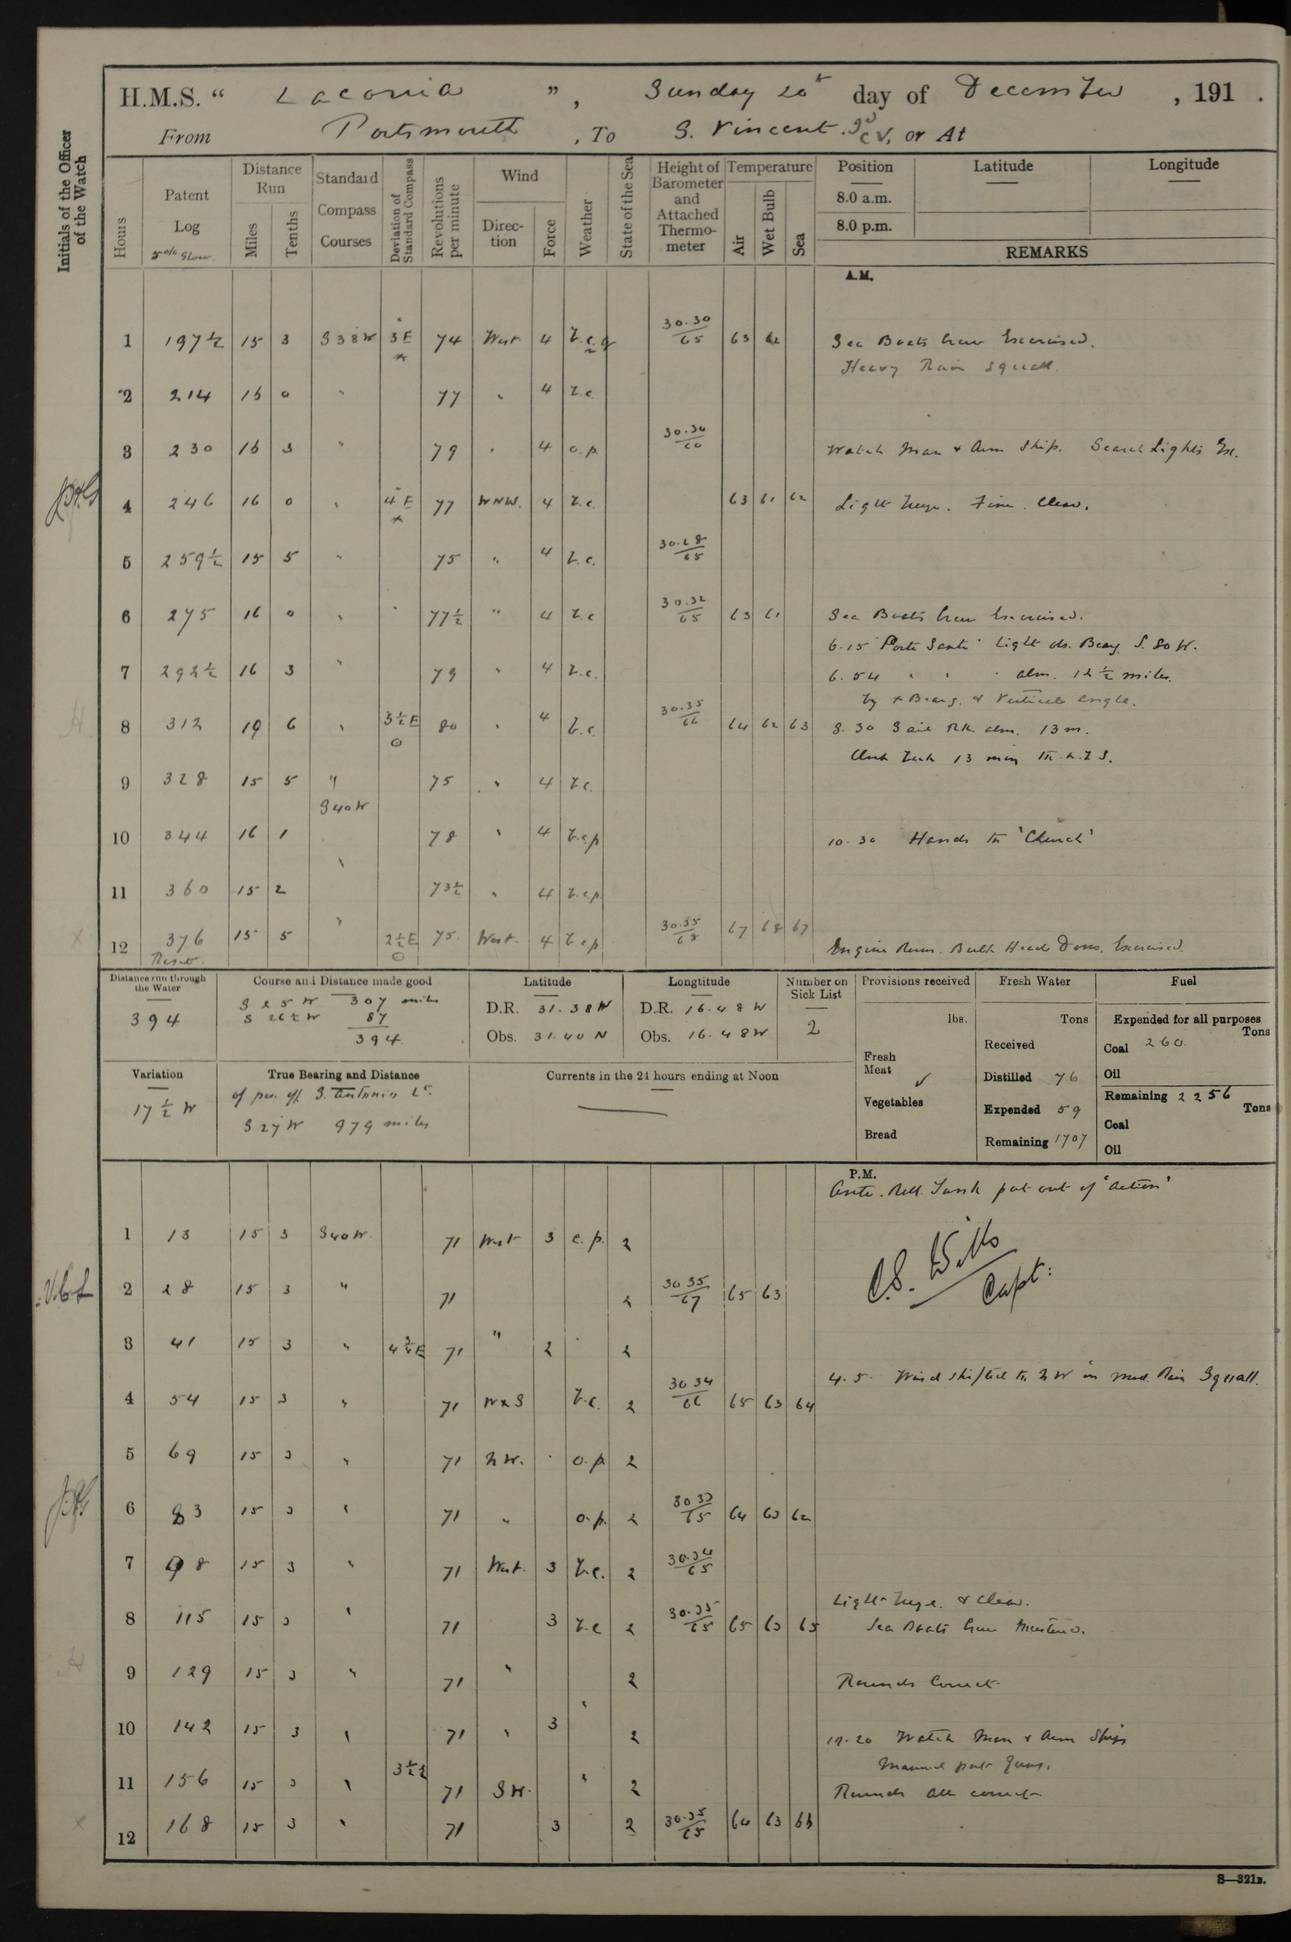 H.M.S. " Laconia ", Sunday 20th day of December, 191 .
From Portsmouth, To S. Vincent. C.V. or At
Initials of the Officer of the Watch
Hours
Patent Log
Distance Run Miles Tenths
Standard Compass Courses
Deviation of Standard Compass
Revolutions per minute
Wind Direction Force
Weather
State of the Sea
Height of Barometer and Attached Thermometer
Temperature Air Wet Bulb Sea
Position Latitude Longitude
8.0 a.m.
8.0 p.m.
REMARKS
A.M.
1 197½ 15 3 S38W 3E 74 West 4 30.30/65 63 62 Sea Boats Crew Exercised.
Heavy Rain Squall.
2 214 16 0 " 77 " 4 b.c.
3 230 16 3 " 79 " 4 o.p. 30.30/60 Watch Man & Arm Ship. Search Lights Ex.
4 246 16 0 " 4E 77 WNW. 4 b.c. 63 61 62 Light Airs. Fine. Clear.
5 259½ 15 5 " 75 " 4 b.c. 30.28/65
6 275 16 0 " " 77½ " 4 b.c 30.32/65 63 61 Sea Boats Crew Exercised.
6.15 "Porto Santo" Light obs. Bearg S.80W.
7 292½ 16 3 " 79 " 4 b.c. 6.54 " " " abm. 12½ miles.
by 4 Bearg. & Vertical angle.
8 312 19 6 " 3½E 80 " 4 b.c. 30.35/66 64 62 63 8.30 Sail Rk. abm. 13 m.
Clock back 13 min
9 328 15 5 " 75 " 4 b.c.
S40W
10 344 16 1 78 " 4 b.c.p 10.30 Hands to 'Church'
11 360 15 2 " 73½ " 4 b.c.p
12 376 15 5 " 2½E 75 West. 4 b.c.p 30.35/68 67 68 67 Engine Room. Bulk Head Doors. Exercised.
Reset.
Distance run through the Water
394
Course and Distance made good
S25W 307 miles
S26½W 87
394
Latitude
D.R. 31.38N
Obs. 31.40 N
Longtitude
D.R. 16.48 W
Obs. 16.48W
Number on Sick List
2
Provisions received
lbs.
Fresh Meat ✓
Vegetables
Bread
Fresh Water
Tons
Received
Distilled 76
Expended 59
Remaining 1707
Fuel
Expended for all purposes
Tons
Coal 260.
Oil
Remaining 2256
Tons
Coal
Oil
Variation
17½ W
True Bearing and Distance
of pos. off S. Antonio Lt.
S27W 979 miles
Currents in the 24 hours ending at Noon
P.M.
Tank put out of 'action'
1 13 15 3 S40W. 71 West 3 c.p. 2
C.S. Wills
Capt:
2 28 15 3 " 71 2 30 35/67 65 63
3 41 15 3 " 4¾E 71 " 2 2
4.5. Wind shifted to NW in mod. Rain Squall.
4 54 15 3 " 71 WxS b.c. 2 30 34/66 65 63 64
5 69 15 3 " 71 NW. o.p. 2
6 83 15 3 " 71 " o.p. 2 30 33/65 64 63 62
7 98 15 3 " 71 West. 3 b.c. 2 30.34/65
Light Airs. & Clear.
8 115 15 3 " 71 3 b.c 2 30.35/65 65 63 65 Sea Boats Crew Mustered.
9 129 15 3 " 71 " 2 Rounds Correct.
10 142 15 3 " 71 " 3 " 2 10.20 Watch Man & Arm Ship
Manned port Guns.
11 156 15 3 " 3½E 71 SW. " 2 Rounds all correct
12 168 15 3 " 71 3 2 30.35/65 64 63 66
S—321B.